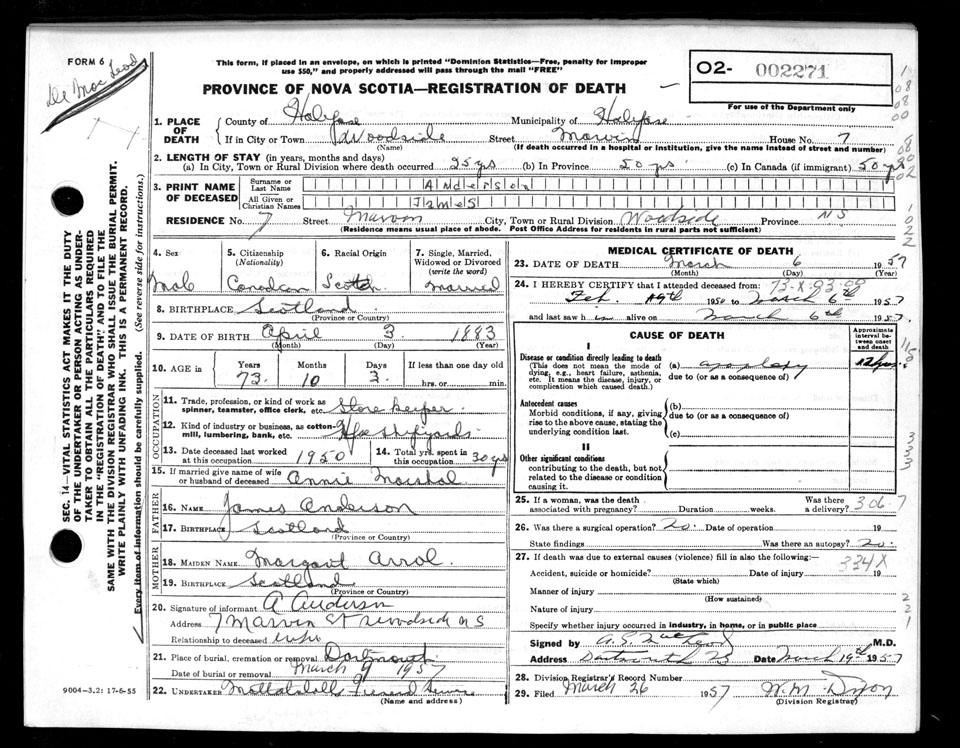 FORM 6
This form, if placed in an envelope, on which is printed "Dominion Statistics—Free, penalty for improper
use $50," and properly addressed will pass through the mail "FREE"
PROVINCE OF NOVA SCOTIA—REGISTRATION OF DEATH
02- 002271
For use of the Department only
1. PLACE OF DEATH
County of Halifax Municipality of Halifax
If in City or Town Woodside Street Marvin House No. 7
(Name) (If death occurred in a hospital or institution, give the name instead of street and number)
2. LENGTH OF STAY (in years, months and days)
(a) In City, Town or Rural Division where death occurred 25 yrs (b) In Province 50 yrs (c) In Canada (if immigrant) 50 yrs
3. PRINT NAME OF DECEASED
Surname or Last Name Anderson
All Given or Christian Names James
RESIDENCE No. 7 Street Marvin City, Town or Rural Division Woodside Province NS
(Residence means usual place of abode. Post Office Address for residents in rural parts not sufficient)
4. Sex
Male
5. Citizenship (Nationality)
Canadian
6. Racial Origin
Scotch
7. Single, Married, Widowed or Divorced (write the word)
Married
8. BIRTHPLACE Scotland
(Province or Country)
9. DATE OF BIRTH April 3 1883
(Month) (Day) (Year)
10. AGE IN
Years Months Days If less than one day old
73 10 3 hrs. or min.
OCCUPATION
11. Trade, profession, or kind of work as spinner, teamster, office clerk, etc. Store keeper
12. Kind of industry or business, as cotton-mill, lumbering, bank, etc. Hfx Shipyards
13. Date deceased last worked at this occupation 1950
14. Total yrs. spent in this occupation 30 yrs
15. If married give name of wife or husband of deceased Annie Marshal
FATHER
16. NAME James Anderson
17. BIRTHPLACE Scotland
(Province or Country)
MOTHER
18. MAIDEN NAME Margaret Arrol
19. BIRTHPLACE Scotland
(Province or Country)
20. Signature of informant A Anderson
Address 7 Marvin St Woodside N S
Relationship to deceased wife
21. Place of burial, cremation or removal Dartmouth
Date of burial or removal March 9 1957
22. UNDERTAKER Funeral Service
(Name and address)
9004-3.2: 17-6-55
MEDICAL CERTIFICATE OF DEATH
23. DATE OF DEATH March 6 1957
(Month) (Day) (Year)
24. I HEREBY CERTIFY that I attended deceased from:
Feb. 1950 to March 6th 1957
and last saw h im alive on March 6th 1957.
CAUSE OF DEATH
Approximate interval between onset and death
I
Disease or condition directly leading to death
(This does not mean the mode of dying, e.g., heart failure, asthenia, etc. It means the disease, injury, or complication which caused death.)
(a) apoplexy
due to (or as a consequence of)
Antecedent causes
Morbid conditions, if any, giving rise to the above cause, stating the underlying condition last.
(b)
due to (or as a consequence of)
(c)
II
Other significant conditions
contributing to the death, but not related to the disease or condition causing it.
25. If a woman, was the death associated with pregnancy? Duration weeks. Was there a delivery?
26. Was there a surgical operation? no. Date of operation 19
State findings Was there an autopsy? no.
27. If death was due to external causes (violence) fill in also the following:
334X
Accident, suicide or homicide? Date of injury 19
(State which)
Manner of injury
(How sustained)
Nature of injury
Specify whether injury occurred in industry, in home, or in public place
Signed by M.D.
Address Dartmouth NS Date March 19th 1957
28. Division Registrar's Record Number
29. Filed March 26 1957 W. M. Dixon
(Division Registrar)
SEC. 14—VITAL STATISTICS ACT MAKES IT THE DUTY
OF THE UNDERTAKER OR PERSON ACTING AS UNDER-
TAKER TO OBTAIN ALL THE PARTICULARS REQUIRED
IN THE "REGISTRATION OF DEATH" AND TO FILE THE
SAME WITH THE DIVISION REGISTRAR WHO SHALL ISSUE THE BURIAL PERMIT.
WRITE PLAINLY WITH UNFADING INK. THIS IS A PERMANENT RECORD.
Every item of information should be carefully supplied. (See reverse side for instructions.)